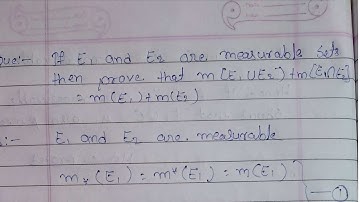 Que:- If E₁ and E₂ are measurable sets
then prove that m(E₁∪E₂)+m(E₁∩E₂)
= m(E₁)+m(E₂)
:- E₁ and E₂ are measurable
m*(E₁) = m*(E₁) = m(E₁) —①